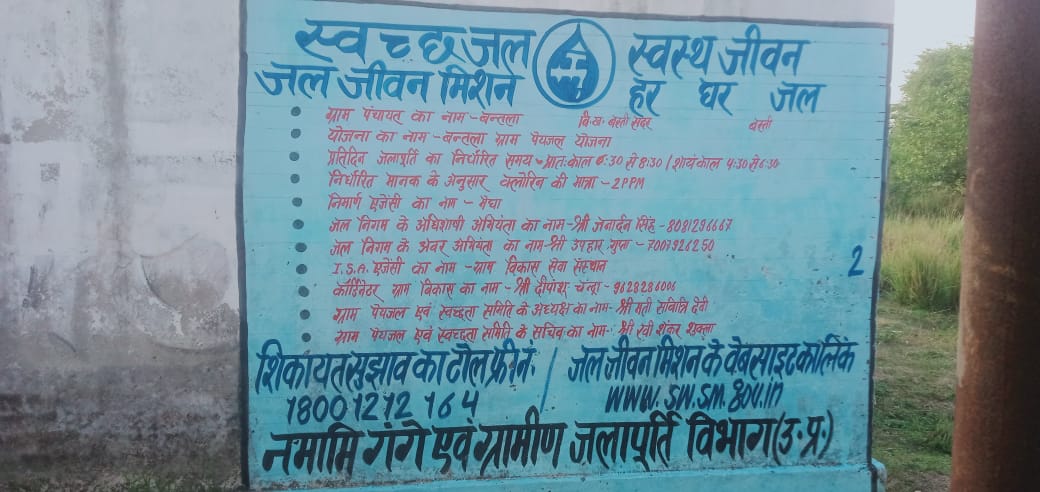 स्वच्छ जल स्वस्थ जीवन
जल जीवन मिशन हर घर जल
ग्राम पंचायत का नाम - बन्तला वि.ख. बस्ती सदर बस्ती
योजना का नाम - बन्तला ग्राम पेयजल योजना
प्रतिदिन जलापूर्ति का निर्धारित समय - प्रातःकाल 6:30 से 8:30 / शायंकाल 4:30 से 6:30
निर्धारित मानक के अनुसार क्लोरिन की मात्रा - 2PPM
निमार्ण एजेंसी का नाम - मेघा
जल निगम के अधिशाषी अभियंता का नाम - श्री जनार्दन सिंह - 8081296667
जल निगम के अवर अभियंता का नाम - श्री उपहार गुप्ता - 7007926250
I.S.A. एजेंसी का नाम - ग्राम विकास सेवा संस्थान
कॉर्डिनेटर ग्राम विकास का नाम - श्री दीपांश चन्द्रा - 9628286006
ग्राम पेयजल एवं स्वच्छता समिति के अध्यक्ष का नाम - श्री मती सवित्रि देवी
ग्राम पेयजल एवं स्वच्छता समिति के सचिव का नाम - श्री रवी शंकर शुक्ला
2
शिकायत सुझाव का टोल फ्री नं. / जल जीवन मिशन के वेबसाइट का लिंक
1800 1212 164 www.swsm.gov.in
नमामि गंगे एवं ग्रामीण जलापूर्ति विभाग (उ.प्र.)